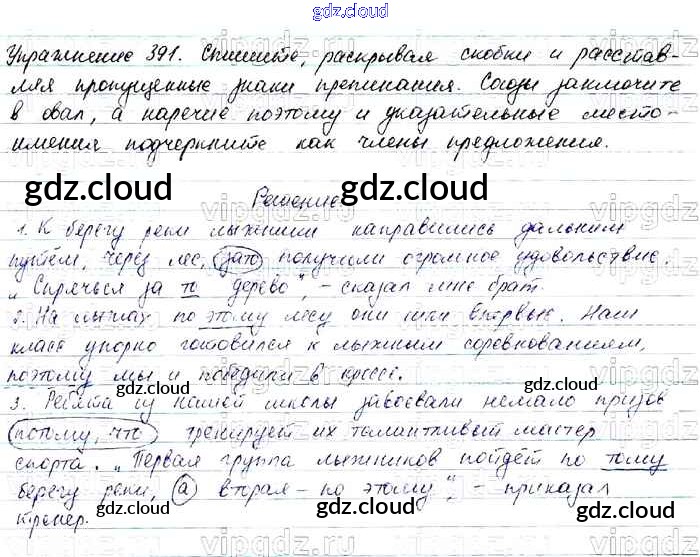 gdz.cloud
Упражнение 391. Спишите, раскрывая скобки и расстав-
ляя пропущенные знаки препинания. Союзы заключите
в овал, а наречие поэтому и указательные место-
имения подчеркните как члены предложения.
gdz.cloud gdz.cloud gdz.cloud
Решение
1. К берегу реки лыжники направились дальним
путём, через лес, зато получили огромное удовольствие.
„Спрячься за то дерево", - сказал мне брат.
2. На лыжах по этому лесу они шли впервые. Наш
класс упорно готовился к лыжным соревнованиям,
поэтому мы и победили в кроссе.
gdz.cloud gdz.cloud
3. Ребята из нашей школы завоевали немало призов
потому, что тренирует их талантливый мастер
спорта. „Первая группа лыжников пойдёт по тому
берегу реки, а вторая - по этому", - приказал
тренер.
gdz.cloud gdz.cloud gdz.cloud